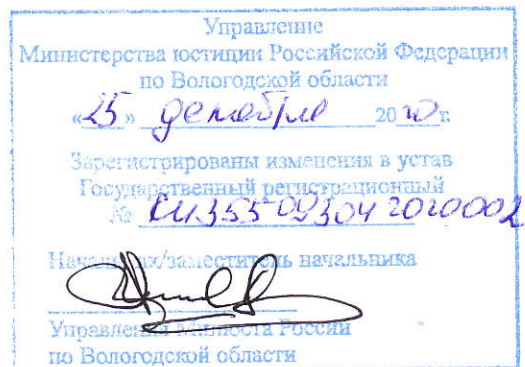 Управление
Министерства юстиции Российской Федерации
по Вологодской области
«25» декабря 2020 г.
Зарегистрированы изменения в устав
Государственный регистрационный
№ RU355093042020002
Начальник/заместитель начальника
Управления Минюста России
по Вологодской области